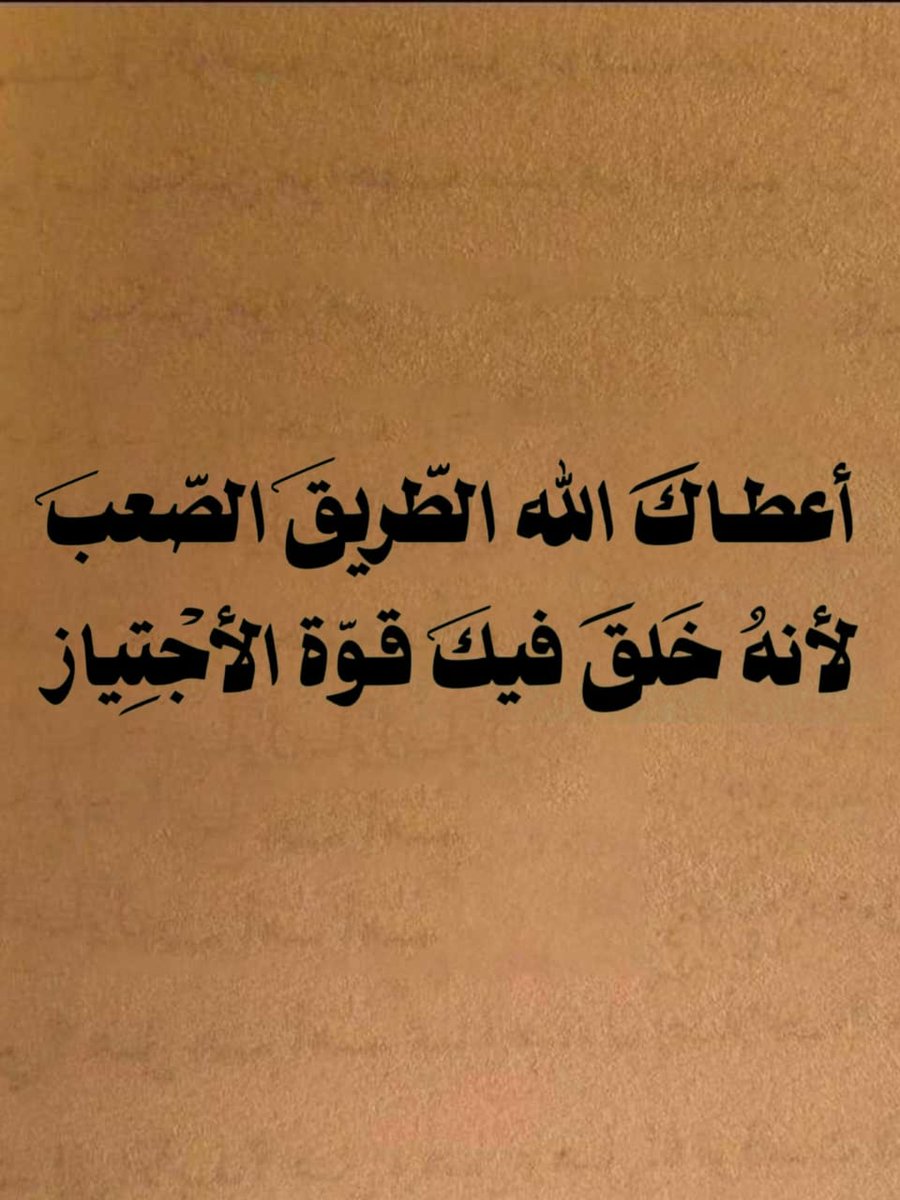 أعطاكَ الله الطّريقَ الصّعبَ
لأنهُ خَلقَ فيكَ قوّة الأجْتِياز